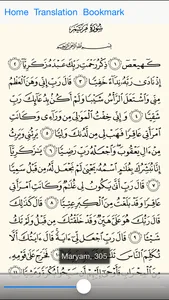 Home Translation Bookmark
سُورَةُ مَرْيَمَ
بِسْمِ ٱللَّهِ ٱلرَّحْمَٰنِ ٱلرَّحِيمِ
كٓهيعٓصٓ ۝١ ذِكْرُ رَحْمَتِ رَبِّكَ عَبْدَهُۥ زَكَرِيَّآ ۝٢
إِذْ نَادَىٰ رَبَّهُۥ نِدَآءً خَفِيًّا ۝٣ قَالَ رَبِّ إِنِّى وَهَنَ ٱلْعَظْمُ
مِنِّى وَٱشْتَعَلَ ٱلرَّأْسُ شَيْبًا وَلَمْ أَكُنۢ بِدُعَآئِكَ رَبِّ
شَقِيًّا ۝٤ وَإِنِّى خِفْتُ ٱلْمَوَٰلِىَ مِن وَرَآءِى وَكَانَتِ
ٱمْرَأَتِى عَاقِرًا فَهَبْ لِى مِن لَّدُنكَ وَلِيًّا ۝٥ يَرِثُنِى وَيَرِثُ
مِنْ ءَالِ يَعْقُوبَ ۖ وَٱجْعَلْهُ رَبِّ رَضِيًّا ۝٦ يَٰزَكَرِيَّآ
إِنَّا نُبَشِّرُكَ بِغُلَٰمٍ ٱسْمُهُۥ يَحْيَىٰ لَمْ نَجْعَل لَّهُۥ مِن قَبْلُ سَمِيًّا
۝٧ قَالَ رَبِّ أَنَّىٰ يَكُونُ لِى غُلَٰمٌ وَكَانَتِ ٱمْرَأَتِى
عَاقِرًا وَقَدْ بَلَغْتُ مِنَ ٱلْكِبَرِ عِتِيًّا ۝٨ قَالَ كَذَٰلِكَ
قَالَ رَبُّكَ هُوَ عَلَىَّ هَيِّنٌ وَقَدْ خَلَقْتُكَ مِن قَبْلُ وَلَمْ تَكُ
شَيْـًٔا ۝٩ قَالَ رَبِّ ٱجْعَل لِّىٓ ءَايَةً ۚ قَالَ ءَايَتُكَ أَلَّا
تُكَلِّمَ ٱلنَّاسَ
Maryam, 305